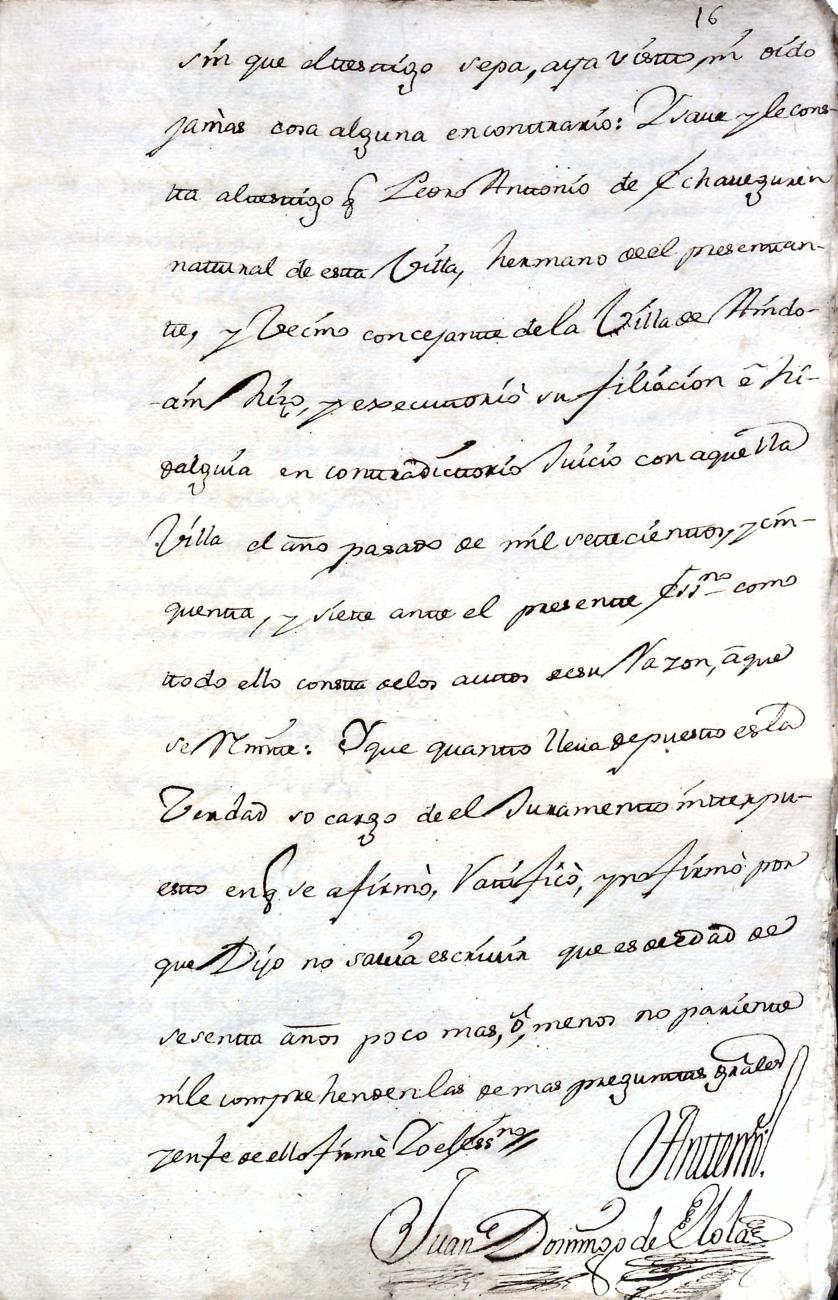 16
sin que el testigo sepa, aya visto, ni oido
jamàs cosa alguna en contrario: Y saue y le cons-
ta al testigo q Pedro Antonio de Echaueguren
natural de esta Villa, hermano de el presentan-
te, y Vecino concejante de la Villa de Ando-
-ain hizo, y executoriò su filiacion è hi-
dalguia en contradictorio Juicio con aquella
Villa el año pasado de mil setecientos, y cin-
quenta, y siete ante el presente Essno como
todo ello consta de los autos de su Razon, à que
se Rmite: Y que quanto lleua depuesto es la
Verdad so cargo de el Juramento interpu-
esto en q se afirmò, Ratificò, y no firmò por
que Dijo no sauia escriuir que es de edad de
sesenta años poco mas, ò, menos no pariente
ni le comprehenden las demas preguntas grales
y en fe de ello firmè Yo el essno
Antemi
Juan Domingo de Elola